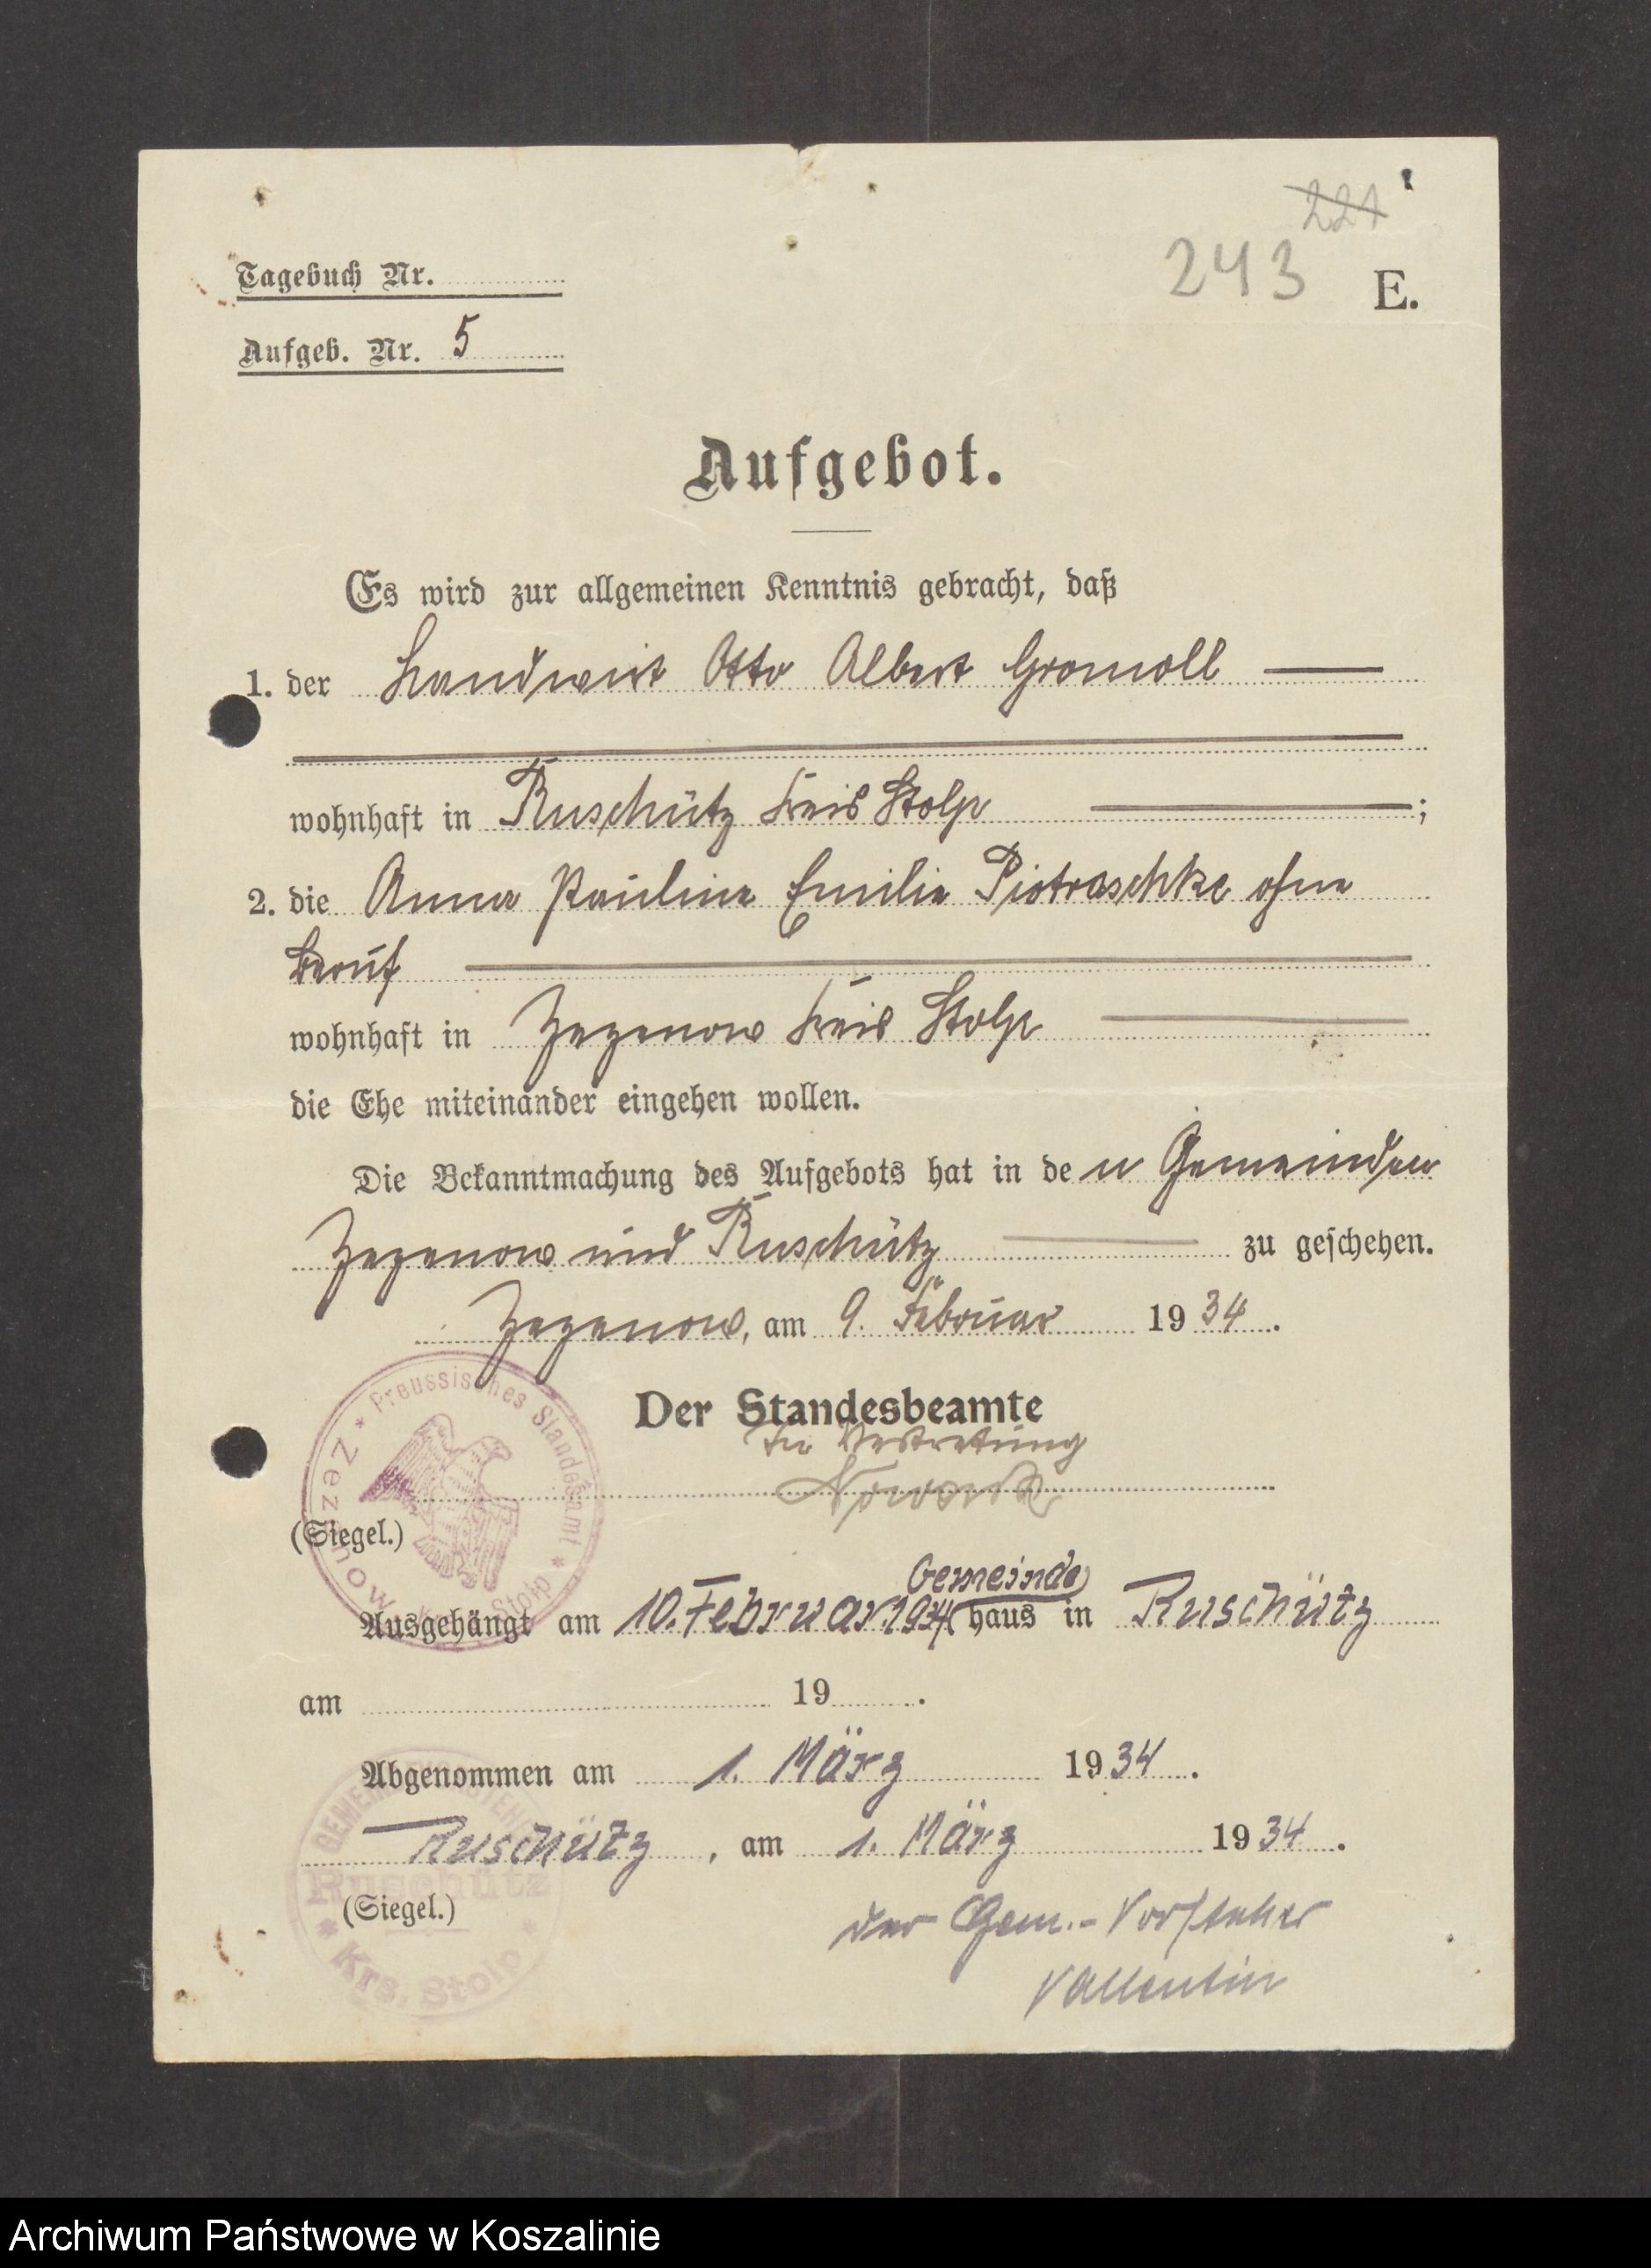 221
243
E.
Tagebuch Nr.
Aufgeb. Nr. 5
Aufgebot.
Es wird zur allgemeinen Kenntnis gebracht, daß
1. der Landwirt Otto Albert Gromoll
wohnhaft in Ruschütz Kreis Stolp ;
2. die Anna Pauline Emilie Piotraschke ohne
Beruf
wohnhaft in Zezenow Kreis Stolp
die Ehe miteinander eingehen wollen.
Die Bekanntmachung des Aufgebots hat in den Gemeinden
Zezenow und Ruschütz zu geschehen.
Zezenow, am 9. Februar 1934.
Preussisches Standesamt * Zezenow * Stolp
Der Standesbeamte
In Vertretung
(Siegel.)
Gemeinde
Ausgehängt am 10. Februar 1934 haus in Ruschütz
am 19 .
Abgenommen am 1. März 1934.
Ruschütz, am 1. März 1934.
Ruschütz
* Krs. Stolp *
(Siegel.)
der Gem.-Vorsteher
Vallentin
Archiwum Państwowe w Koszalinie